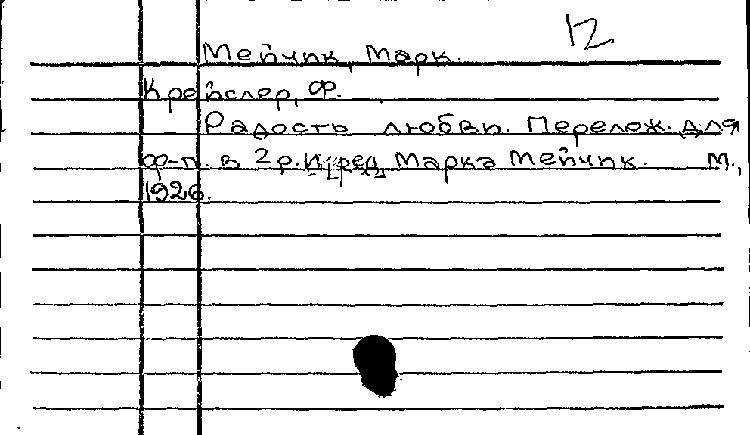 12
Мейчик, Марк.
Крейслер, Ф.
Радость любви. Перелож. для
ф-п. в 2 р. и ред. Марка Мейчик. М.,
1926.